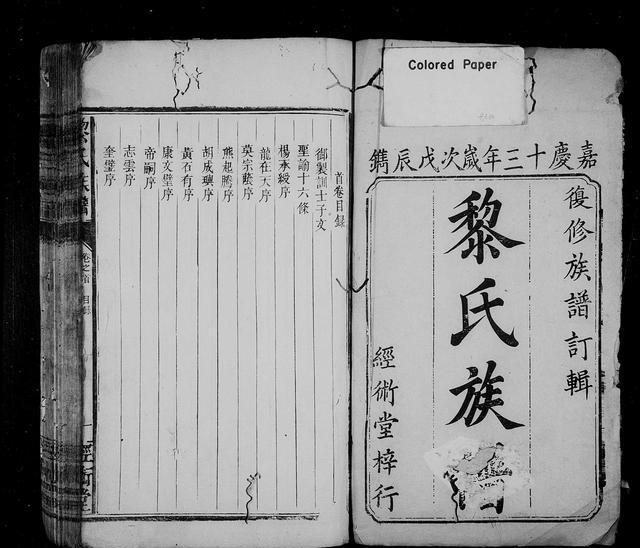 Colored Paper
嘉慶十三年歲次戊辰鐫
復修族譜訂輯
黎氏族譜
經術堂梓行
首卷目錄
御製訓士子文
聖諭十六條
楊承綬序
龍在天序
莫宗蔭序
熊起騰序
胡成璵序
黃石有序
康文璧序
帝嗣序
志雲序
奎璧序
黎氏族譜
卷之首 目錄
一
經術堂